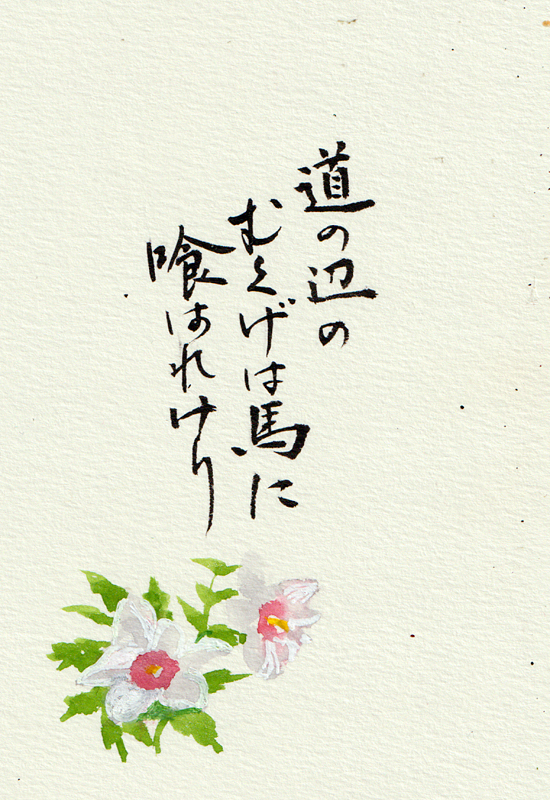 道の辺の
むくげは馬に
喰はれけり